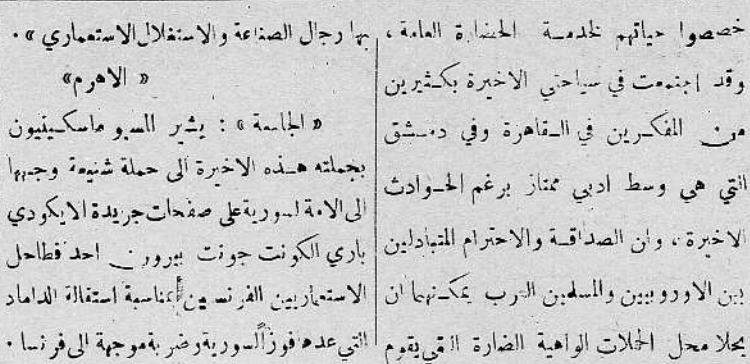 خصصوا حياتهم لخدمة الحضارة العامة ،
وقد اجتمعت في سياحتي الاخيرة بكثيرين
من المفكرين في القاهرة وفي دمشق
التي هي وسط ادبي ممتاز برغم الحوادث
الاخيرة ، وان الصداقة والاحترام المتبادلين
بين الاوروبيين والمسلمين العرب يمكنهما ان
يحلا محل الحملات الواهية الضارة التي يقوم
بها رجال الصناعة والاستغلال الاستعماري » .
« الاهرام »
« الجامعة » : يشير المسيو ماسكينيون
بجملته هذه الاخيرة الى حملة شنيعة وجهها
الى الامة السورية على صفحات جريدة الايكودي
باري الكونت جونت بيرون احد فطاحل
الاستعماريين الفرنسيين بمناسبة استقالة الداماد
التي عدها فوزاً لسورية وضربة موجهة الى فرنسا .